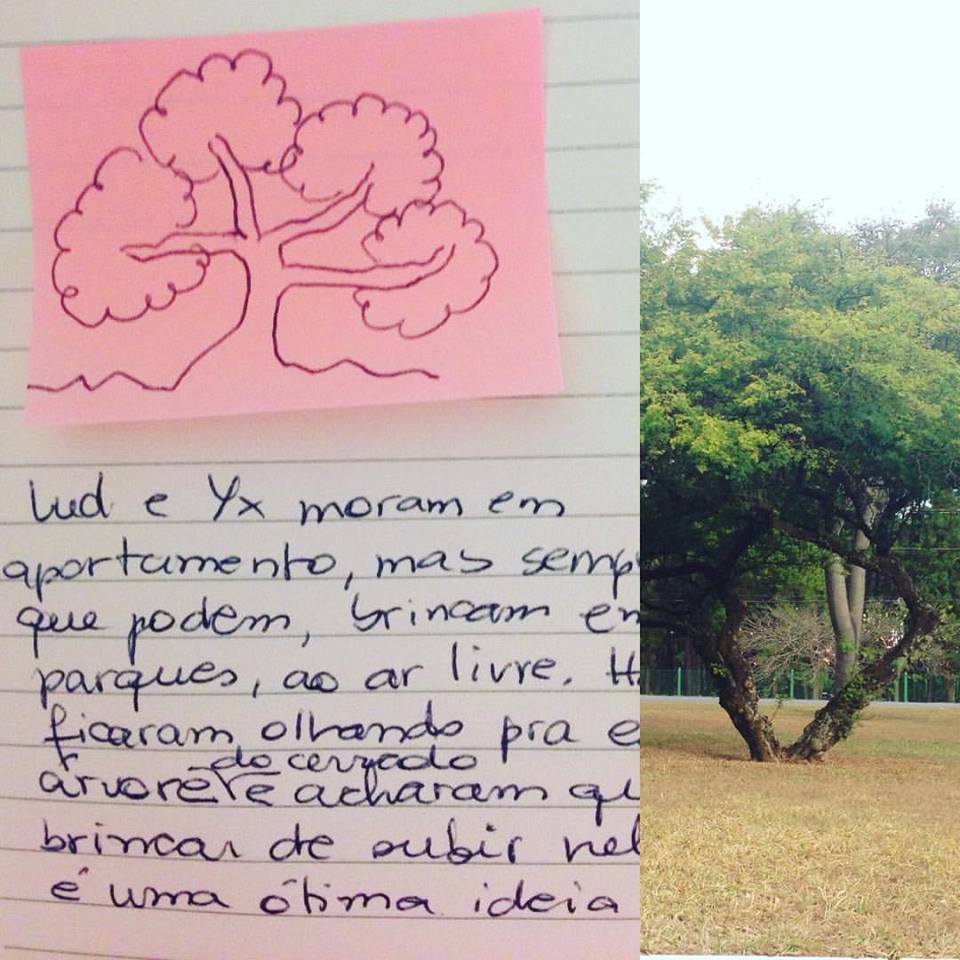 Lud e Yx moram em
apartamento, mas semp
que podem, brincam em
parques, ao ar livre. H
ficaram olhando pra e
do cerrado
árvore e acharam qu
brincar de subir nel
é uma ótima ideia